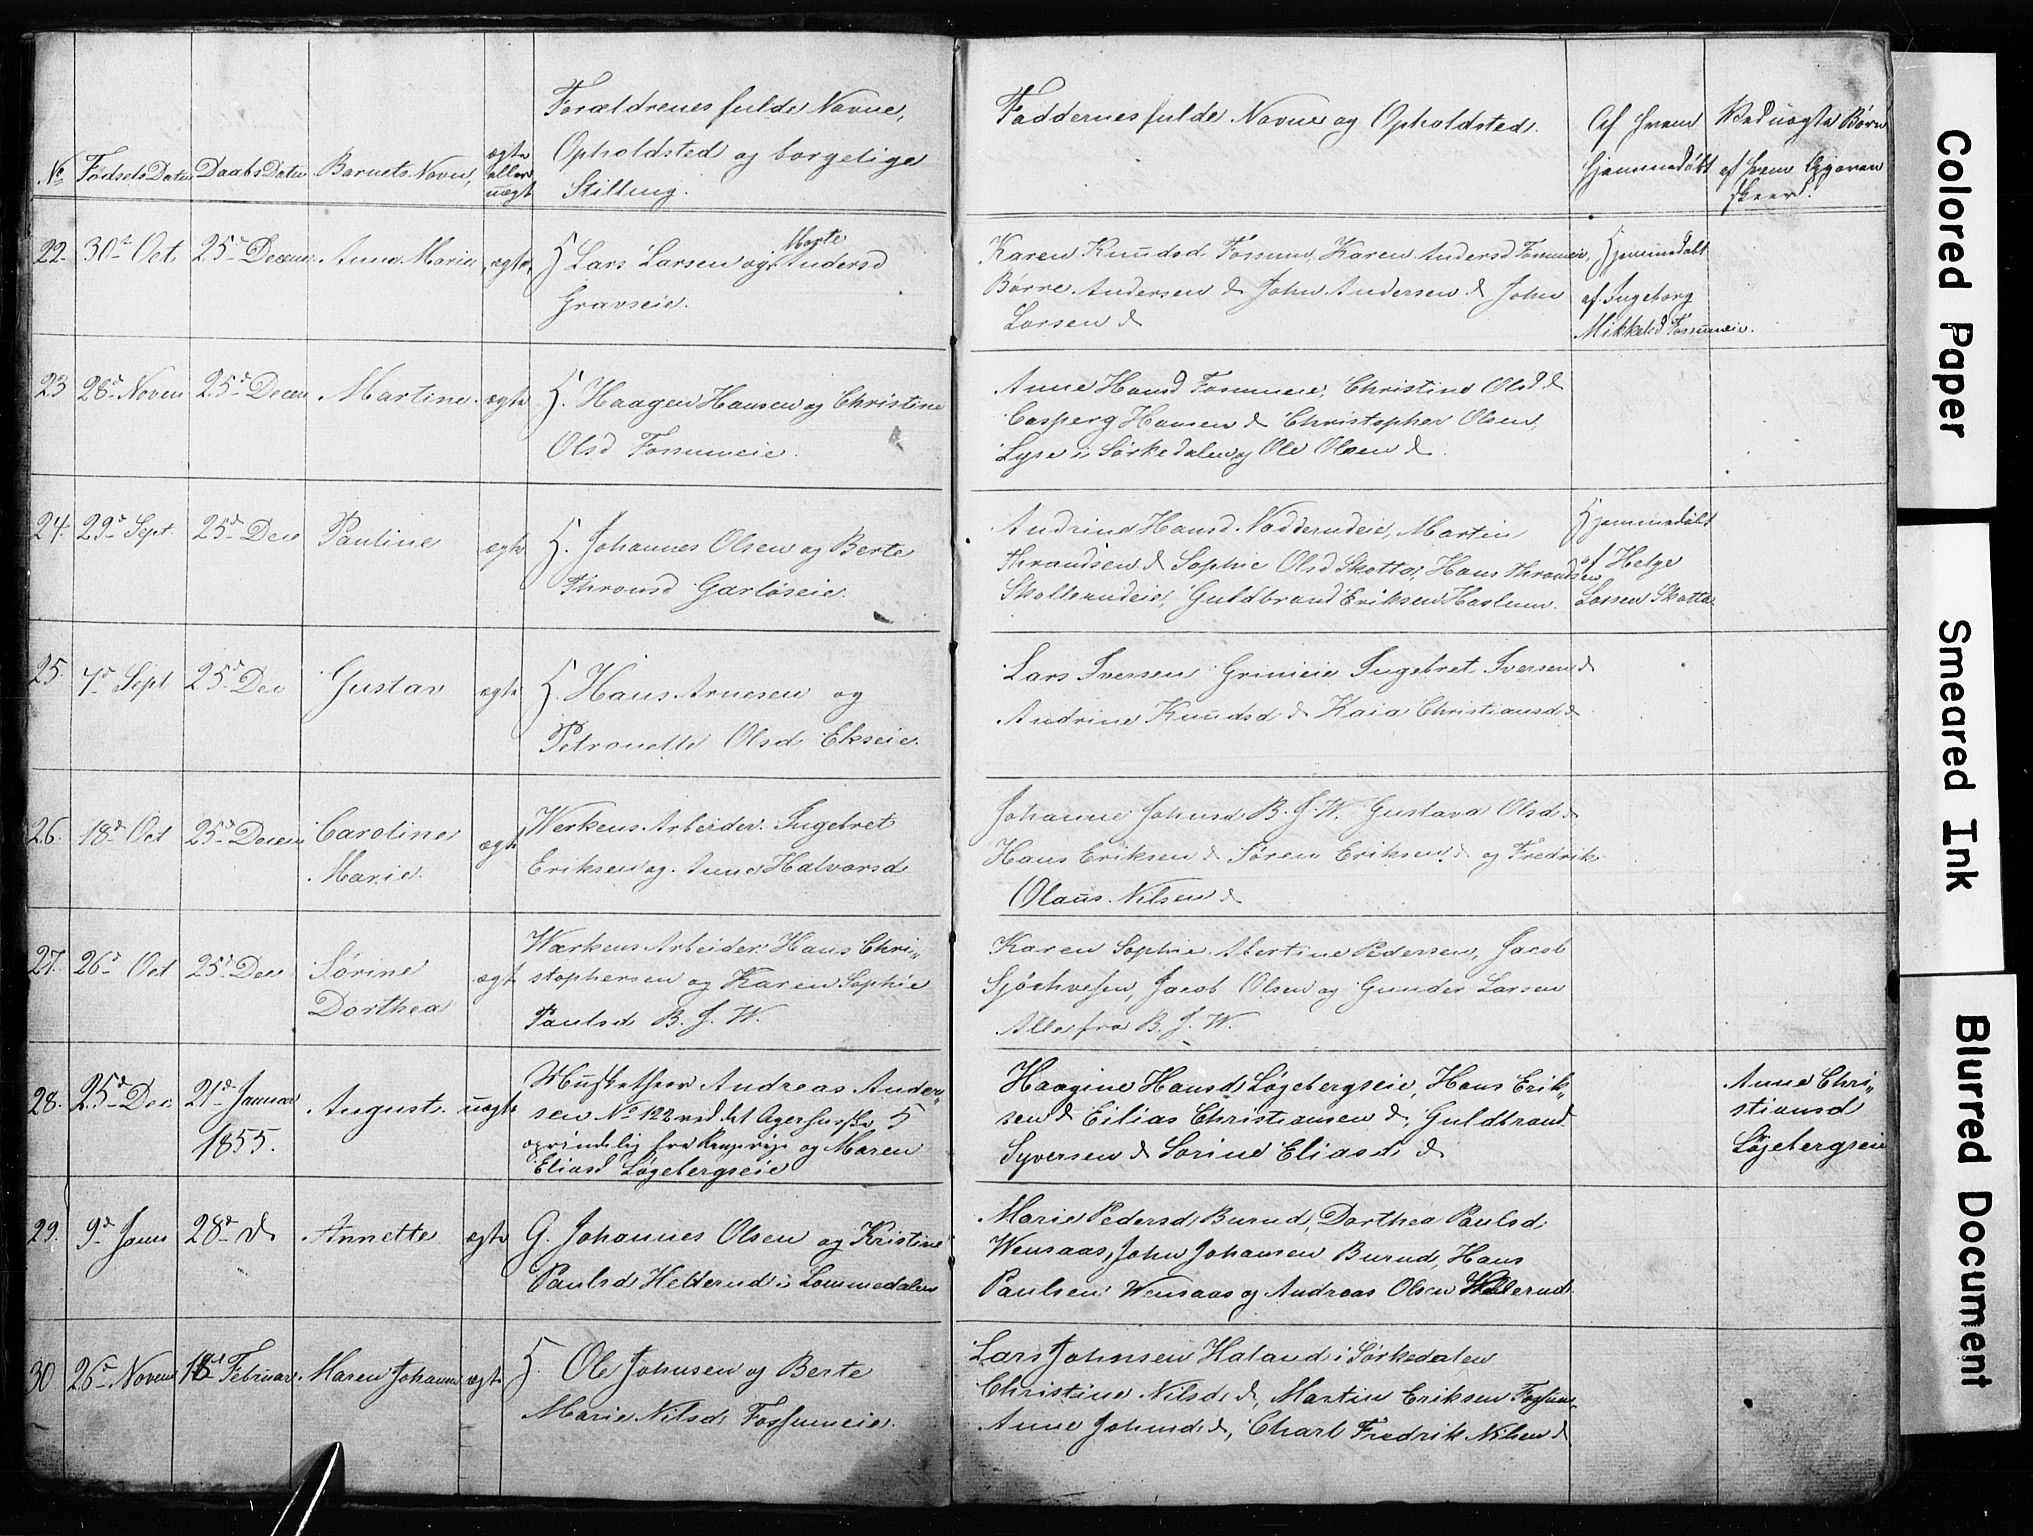 No
Fødsels Datu
Daabs Datu
Barnets Navn,
ægte
eller
uægt
Forældrenes fulde Navne,
Opholdsted og borgelige
Stilling.
Faddernes fulde Navne og Opholdsted.
Af hvem
hjemmedøbt
Ved uægte Børn
af hvem Opgaven
skeer.
22.
30t Oct.
25d Decem
Anne Marie
ægte
H. Lars Larsen og Marte Andersd
Gravseie.
Karen Knudsd Fossum, Karen Andersd Fossumeie,
Børre Andersen d John Andersen d John
Larsen d
Hjemmedøbt
af Ingeborg
Mikkelsd Fossumeie.
23
28d Novem
25d Decem
Martine.
ægte
H. Haagen Hansen og Christine
Olsd Fossumeie.
Anne Hansd Fossumeie, Christine Olsd d
Casper Hansen d Christopher Olsen,
Lyse i Sørkedalen og Ole Olsen d.
24.
29d Sept.
25d Dec
Pauline
ægte
H. Johannes Olsen og Berte
Thronsd Garløseie.
Andrine Hansd Nadderudeie, Martin
Thrandsen d Sophie Olsd Skotta, Hans Thrandsen
Skollerudeie, Guldbrand Eriksen Haslum.
Hjemmedøbt
af Helge
Larsen Skotta
25.
7d Sept
25d Dec
Gustav
ægte
H. Hans Arnesen og
Petronelle Olsd Ekseie.
Lars Iversen Grinieie Ingebret Iversen d
Andrine Knudsd d Kaia Christiansd d
26.
18d Oct
25d Decem
Caroline
Marie.
ægte
Werkens Arbeider. Ingebret
Eriksen og Anne Halvorsd
Johanne Johnsd B. J. W. Gustava Olsd d
Hans Eriksen d Søren Eriksen d og Fredrik
Olaus Nilsen d
27.
26d Oct
25d Dec
Sørine
Dorthea
ægt
Werkens Arbeider. Hans Chri„
stophersen og Karen Sophie
Paulsd B. J. W.
Karen Sophie Abertine Pedersen, Jacob
Olsen og Gunder Larsen
Alle fra B. J. W.
28.
25d Dec
21d Januar
1855.
August.
uægte
Musketheer Andreas Ander„
sen No 122 ved det Agershusske 5
oprindelig fra og Maren
Eliasd Løgebergseie
Haagine Hansd Løgebergseie, Hans Erik„
sen d Eilias Christiansen d, Guldbrand
Syversen d Sorine Eliasd d
Anne Chri„
stiansd
Løjebergseie
29.
9d Janu
28d d
Annette
ægte
G. Johannes Olsen og Kristine
Paulsd Hellerud i Lommedalen
Marie Pedersd Burud, Dorthea Paulsd
Wensaas, John Johansen Burud, Hans
Paulsen Wensaas og Andreas Olsen Hellerud
30
26d Novem
18d Februar
Maren Johanne
ægte
H. Ole Johnsen og Berte
Marie Nilsd Fossumeie.
Lars Johnsen Haland i Sørkedalen
Christine Nilsd d, Martin Eriksen Fossum
Anne Johnsd d, Charl Fredrik Nilsen d
Colored Paper
Smeared Ink
Blurred Document